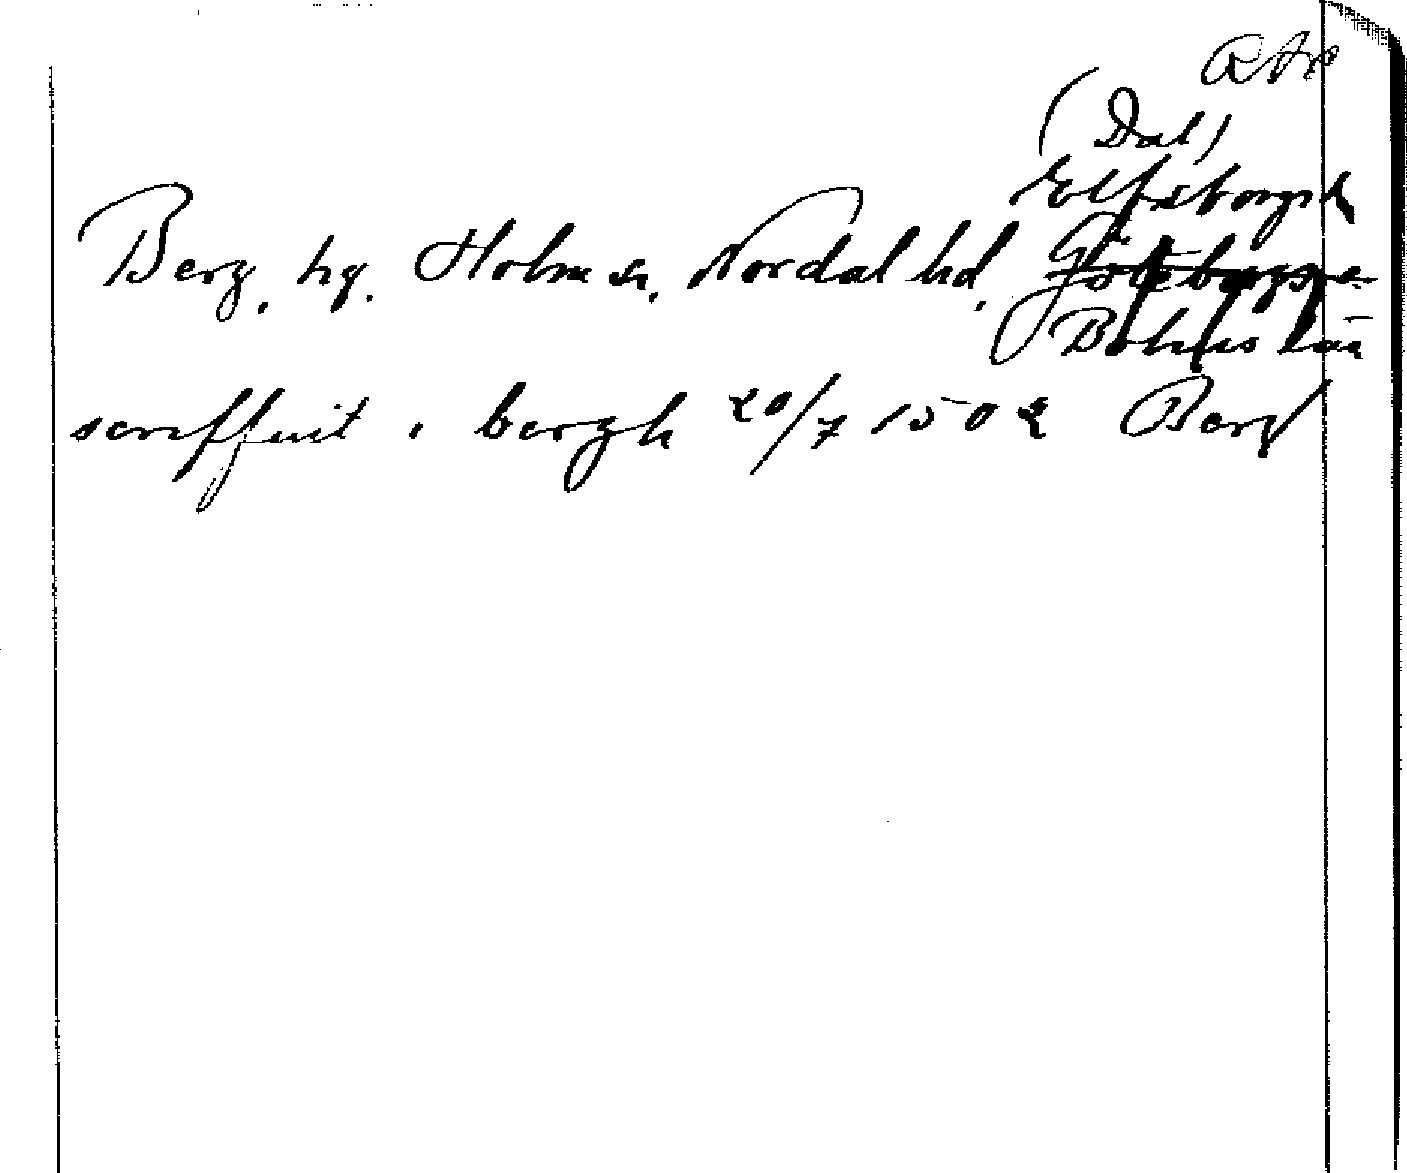 RAp
(Dal)
Elfsborgs l.
Berg, hg. Holms sn, Nordal hd, Göteborgs o.
Bohus län
screffuit i bergh 20/7 1502 Berg